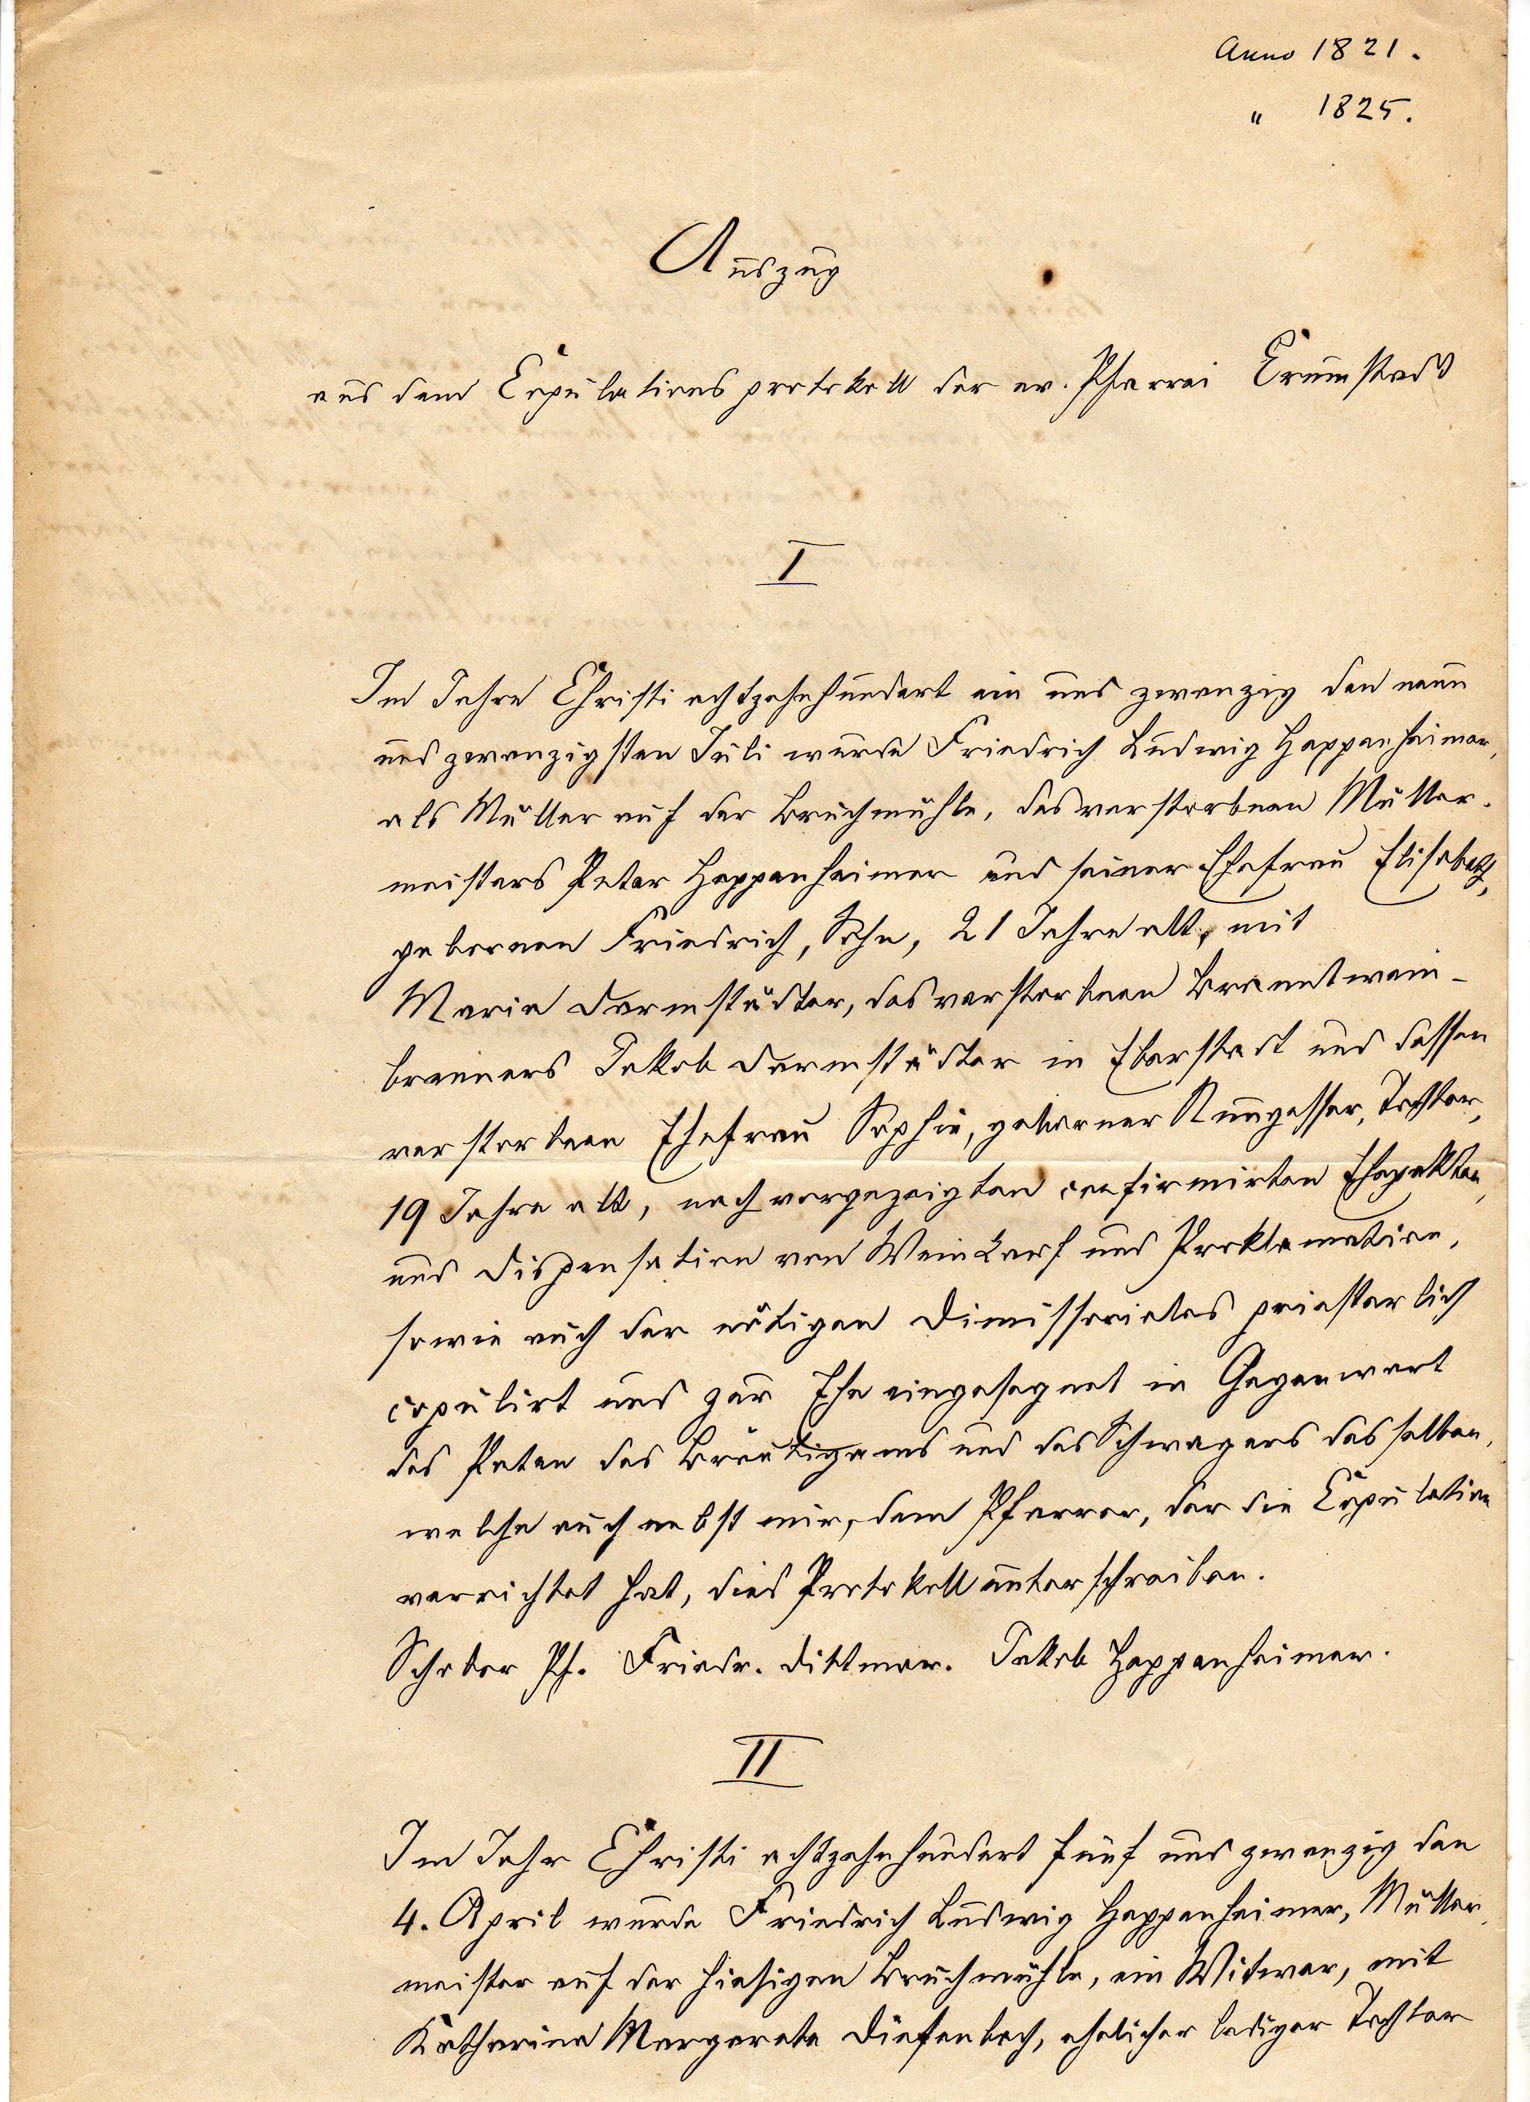 Anno 1821.
" 1825.
Auszug
aus dem Copulationsprotokoll der ev. Pfarrei Crumstadt
I
Im Jahre Christi achtzehnhundert ein und zwanzig den neun
und zwanzigsten Juli wurde Friedrich Ludwig Heppenheimer,
als Müller auf der Bruchmühle, des verstorbenen Müller-
meisters Peter Heppenheimer und seiner Ehefrau Elisabeth,
gebornen Friedrich, Sohn, 21 Jahre alt, mit
Maria Darmstädter, des verstorbenen Branntwein-
brenners Jakob Darmstädter in Eberstadt und dessen
verstorbenen Ehefrau Sophie, geborner Rungesser, Tochter,
19 Jahre alt, nach vorgezeigten confirmirten Ehepakten,
und Dispensation von Weinkauf und Proklamation,
sowie auch der nötigen Dimissoriales priesterlich
copulirt und zur Ehe eingesegnet in Gegenwart
des Peten des Bräutigams und des Schwagers desselben,
welche auch nebst mir, dem Pfarrer, der die Copulation
verrichtet hat, dies Protokoll unterschreiben.
Schober Pf. Friedr. Dittmar. Jakob Heppenheimer.
II
Im Jahr Christi achtzehnhundert fünf und zwanzig den
4. April wurde Friedrich Ludwig Heppenheimer, Müller-
meister auf der hiesigen Bruchmühle, ein Witwer, mit
Katharina Margareta Diefenbach, ehelicher lediger Tochter